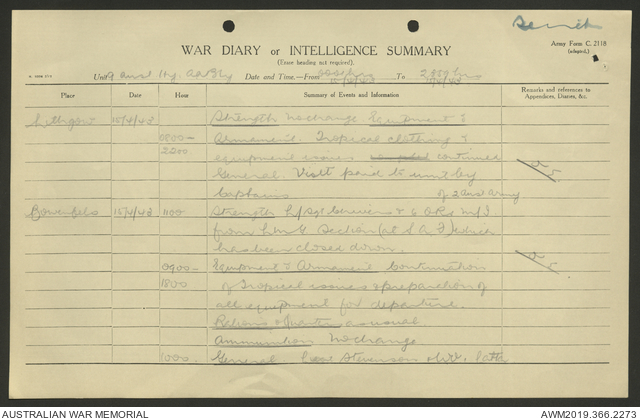 WAR DIARY or INTELLIGENCE SUMMARY
Army Form C. 2118
(adapted.)
(Erase heading not required).
Unit 9 Aust Hy. AA Bty Date and Time.—From To 2359 hrs
Place Date Hour Summary of Events and Information Remarks and references to Appendices, Diaries, &c.
Lithgow 15/4/43 Strength No change Equipment &
0800— Armament. Tropical clothing &
2200 equipment issues continued
General. Visit paid to unit by
Captains of 2 Aust Army
Bowenfels 15/4/43 1100 Strength L/Sgt & 6 ORs M/I
from Section (at S.A.F.) which
has been closed down.
0900— Equipment & Armament Continuation
1800 of Tropical issues & preparation of
all equipment for departure.
Rations & Quarters as usual
Ammunition No change
1000 General. Stevenson
AUSTRALIAN WAR MEMORIAL AWM2019.366.2273